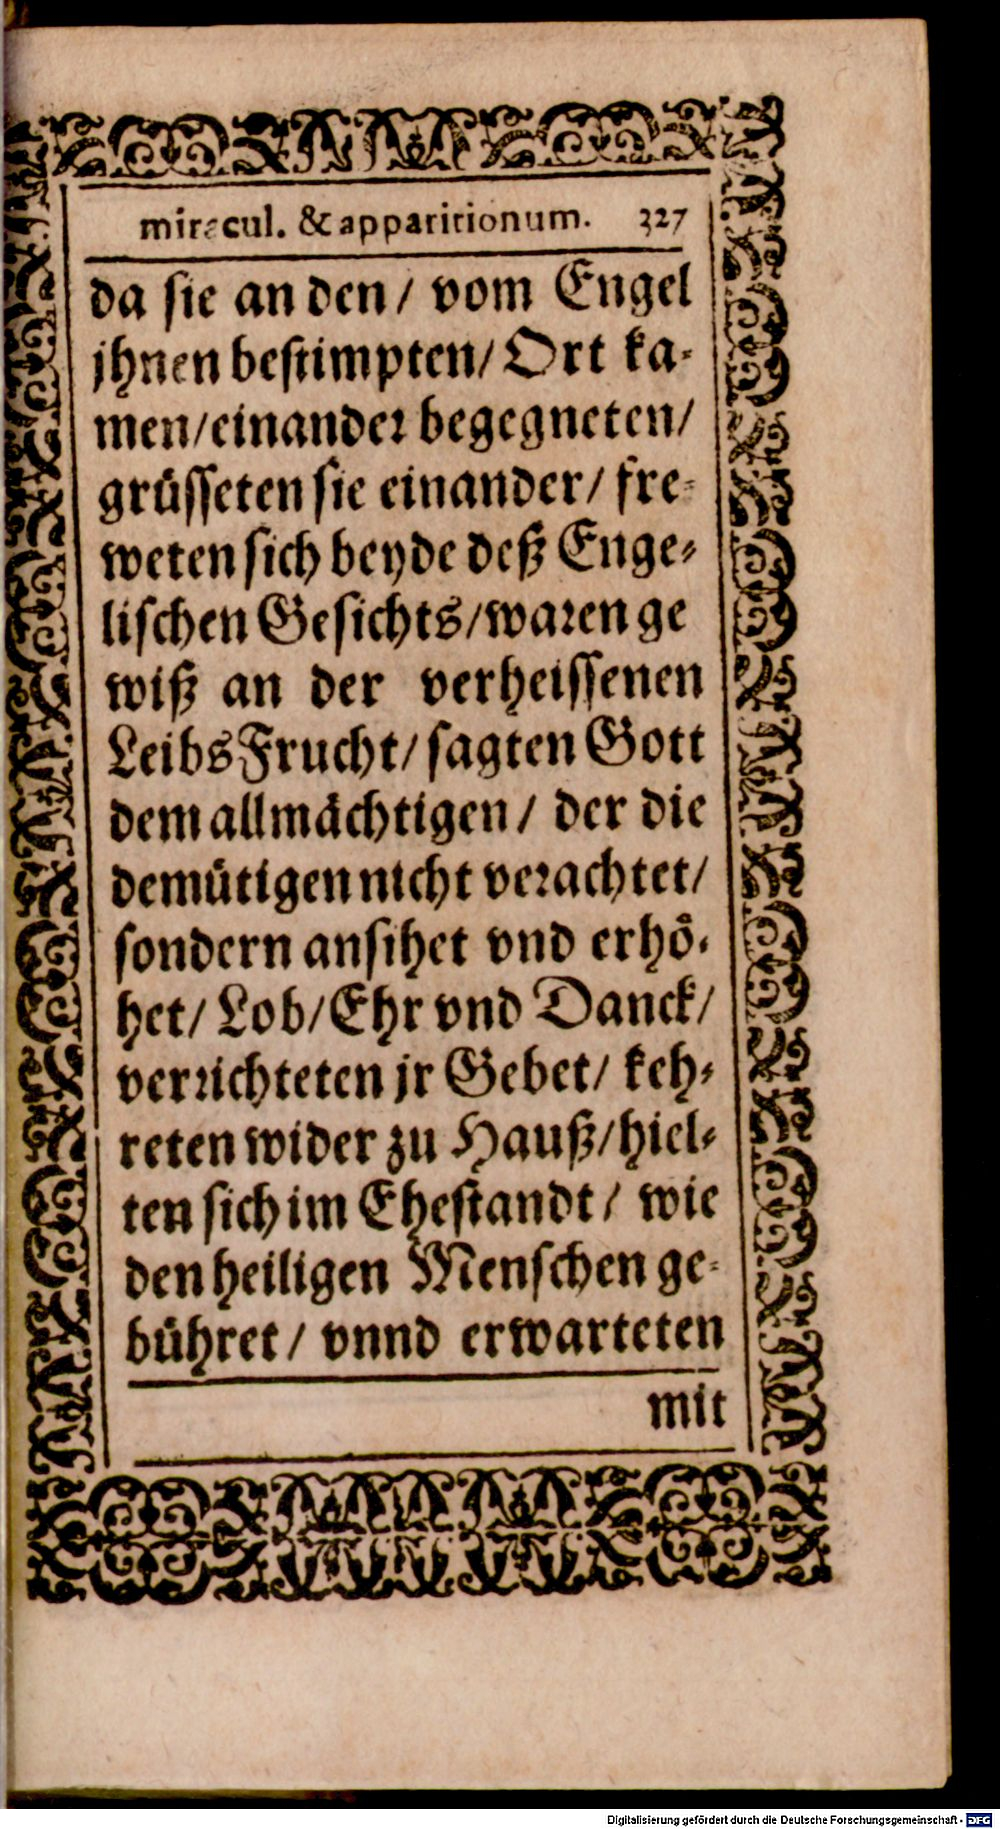 miracul. & apparitionum. 327
da sie an den / vom Engel
jhnen bestimpten / Ort ka-
men / einander begegneten /
grüsseten sie einander / fre-
weten sich beyde deß Enge-
lischen Gesichts / waren ge
wiß an der verheissenen
Leibs Frucht / sagten Gott
dem allmächtigen / der die
demütigen nicht verachtet /
sondern ansihet vnd erhö-
het / Lob / Ehr vnd Danck /
verrichteten jr Gebet / keh-
reten wider zu Hauß / hiel-
ten sich im Ehestandt / wie
den heiligen Menschen ge-
bühret / vnnd erwarteten
mit
Digitalisierung gefördert durch die Deutsche Forschungsgemeinschaft - DFG